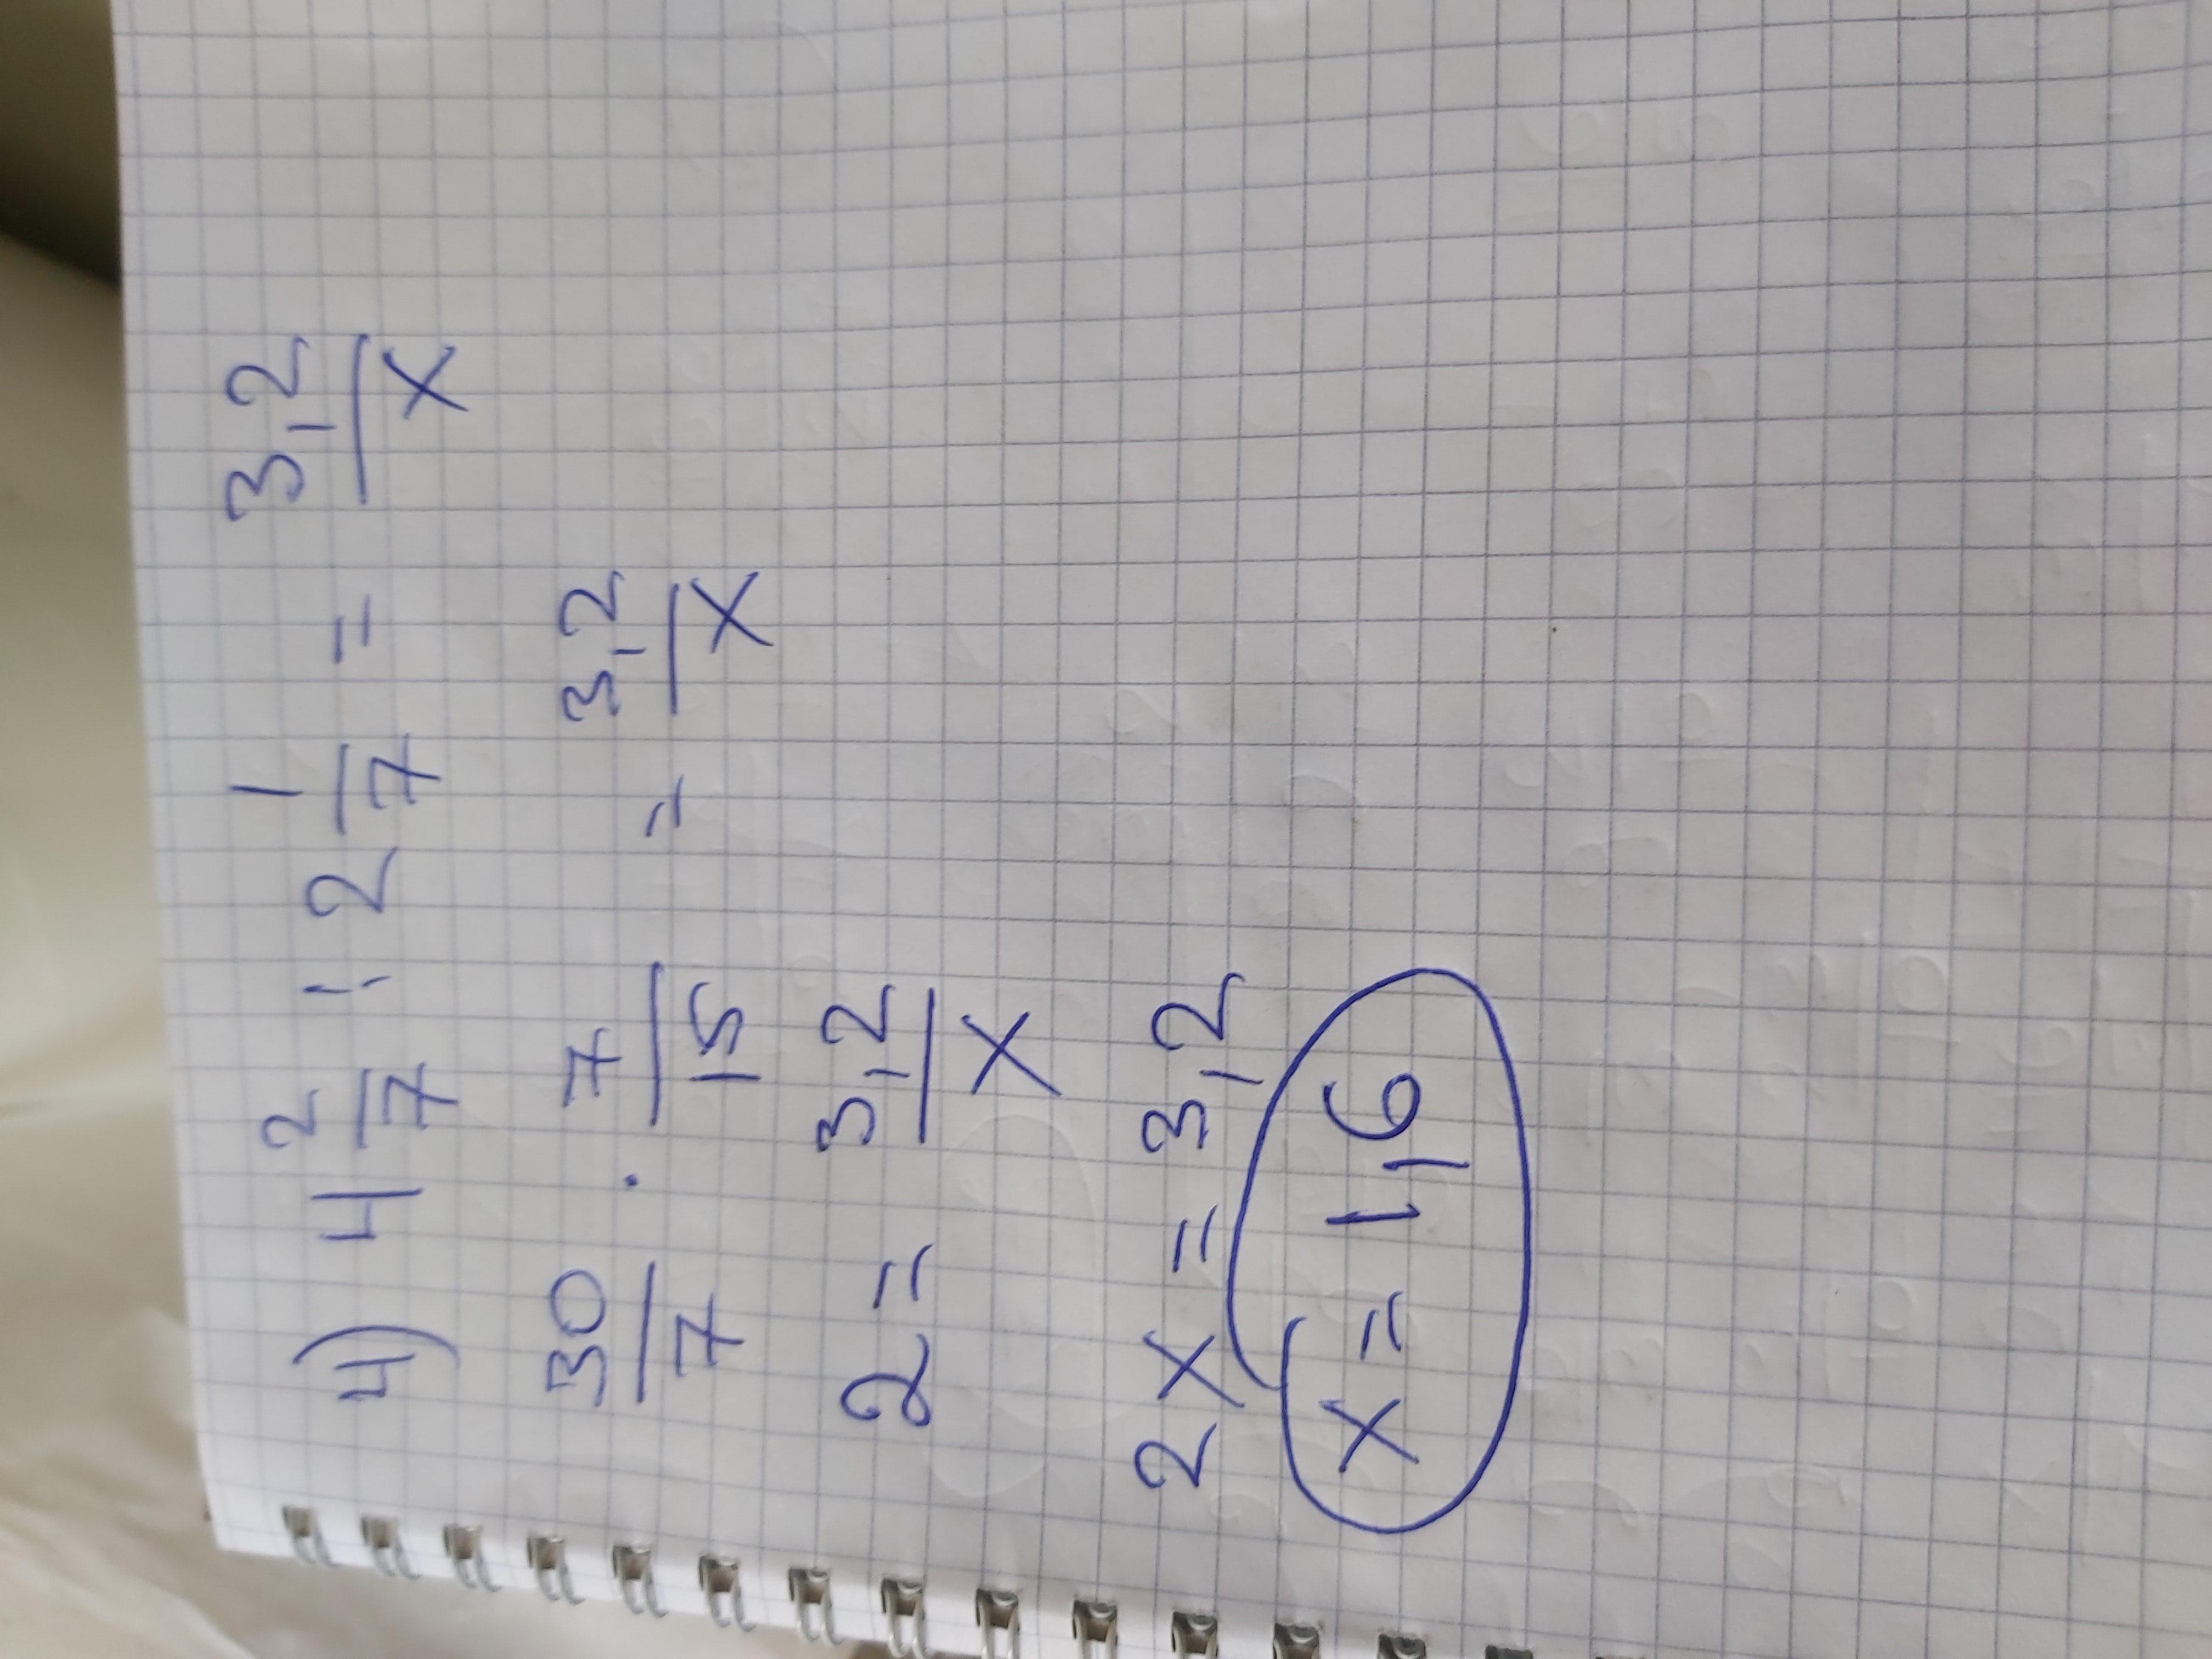 4) 4 2/7 : 2 1/7 = 3,2/x
30/7 · 7/15 = 3,2/x
2 = 3,2/x
2x = 3,2
x = 1,6